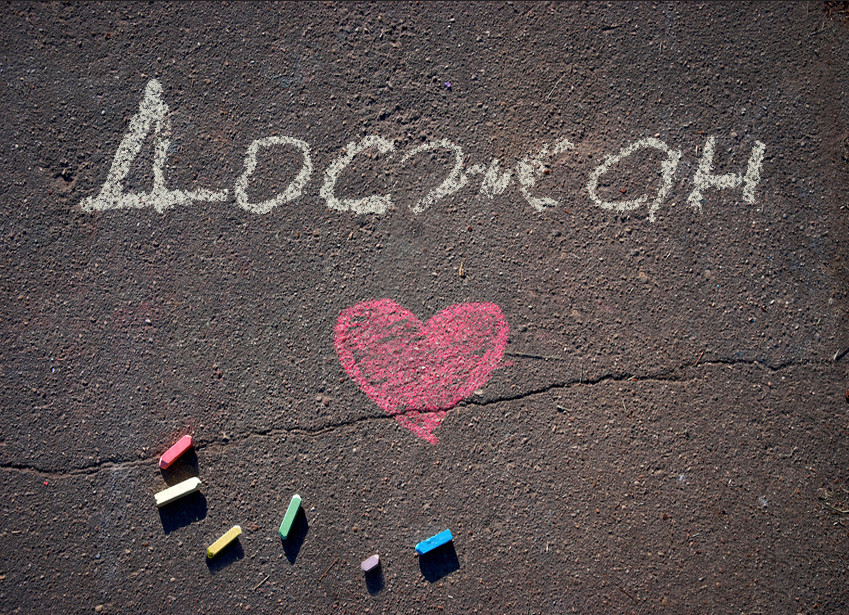 Досжан